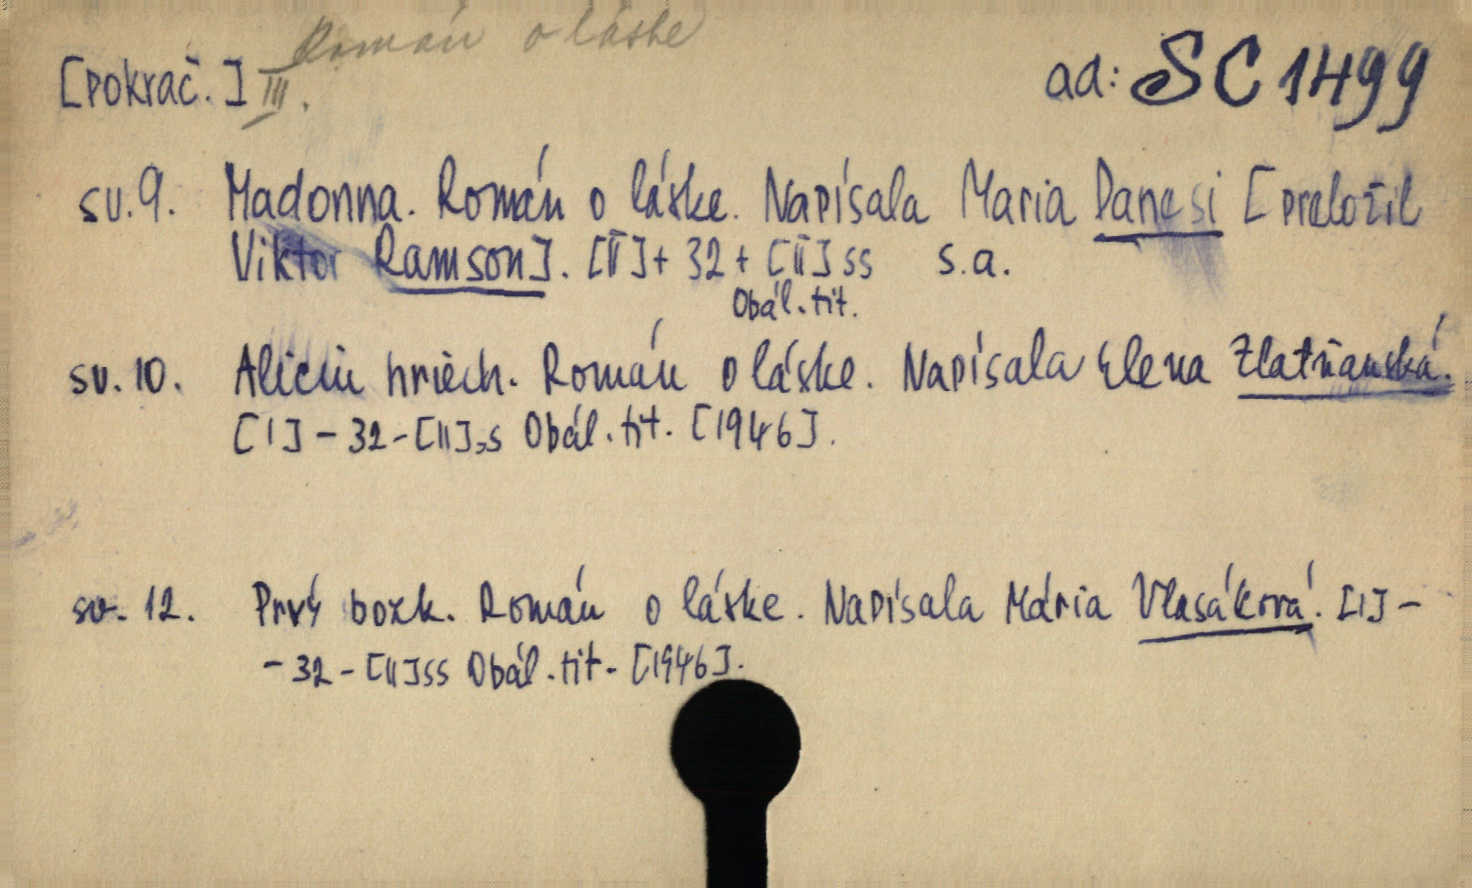 Román o láske
[pokrač.] III. ad: SC 1499
sv. 9. Madonna. Román o láske. Napísala Maria Danesi [preložil
Viktor Ramson]. [II] + 32 + [II] ss s.a.
Obál. tit.
sv. 10. Aliciin hriech. Román o láske. Napísala Elena Zlatňanská.
[I] - 32 - [II] ss Obál. tit. [1946].
sv. 12. Prvý bozk. Román o láske. Napísala Mária Vlasáková. [I] -
- 32 - [II] ss Obál. tit. [1946].